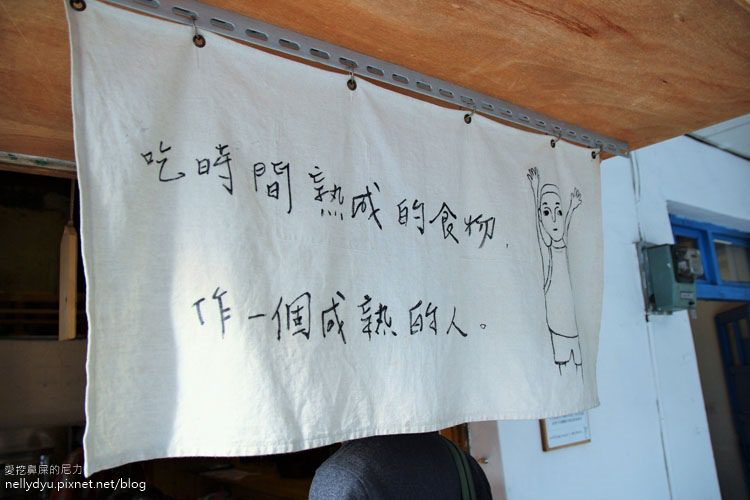 吃時間熟成的食物，
作一個成熟的人。
愛挖鼻屎的尼力
nellydyu.pixnet.net/blog